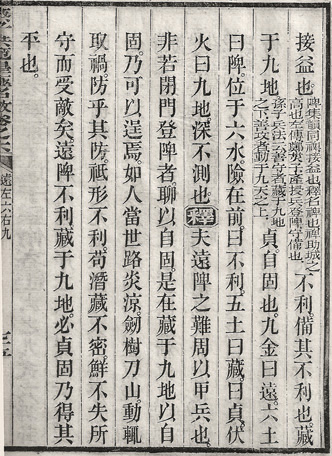 接益也。陴集韻同裨接益也釋名也裨助城之
高也左傳鄭災子產授兵登陴守備也不利。備其不利也。藏
于九地孫子兵法云善守者藏于九地
之下善攻者動于九天之上貞自固也。九金曰遠。六土
曰陴。位于六水。險在前。曰不利。五土曰藏。曰貞。伏
火曰九地深不測也。釋夫遠陴之難周以甲兵也。
非若閉門登陴者聊以自固。是在藏于九地以自
固。乃可以逞焉。如人當世路炎涼劒樹刀山。動輒
取禍。防乎其防。祇形不利。苟潛藏不密。鮮不失所
守而受敵矣。遠陴不利。藏于九地。必貞固乃得其
平也。
遠左六右九